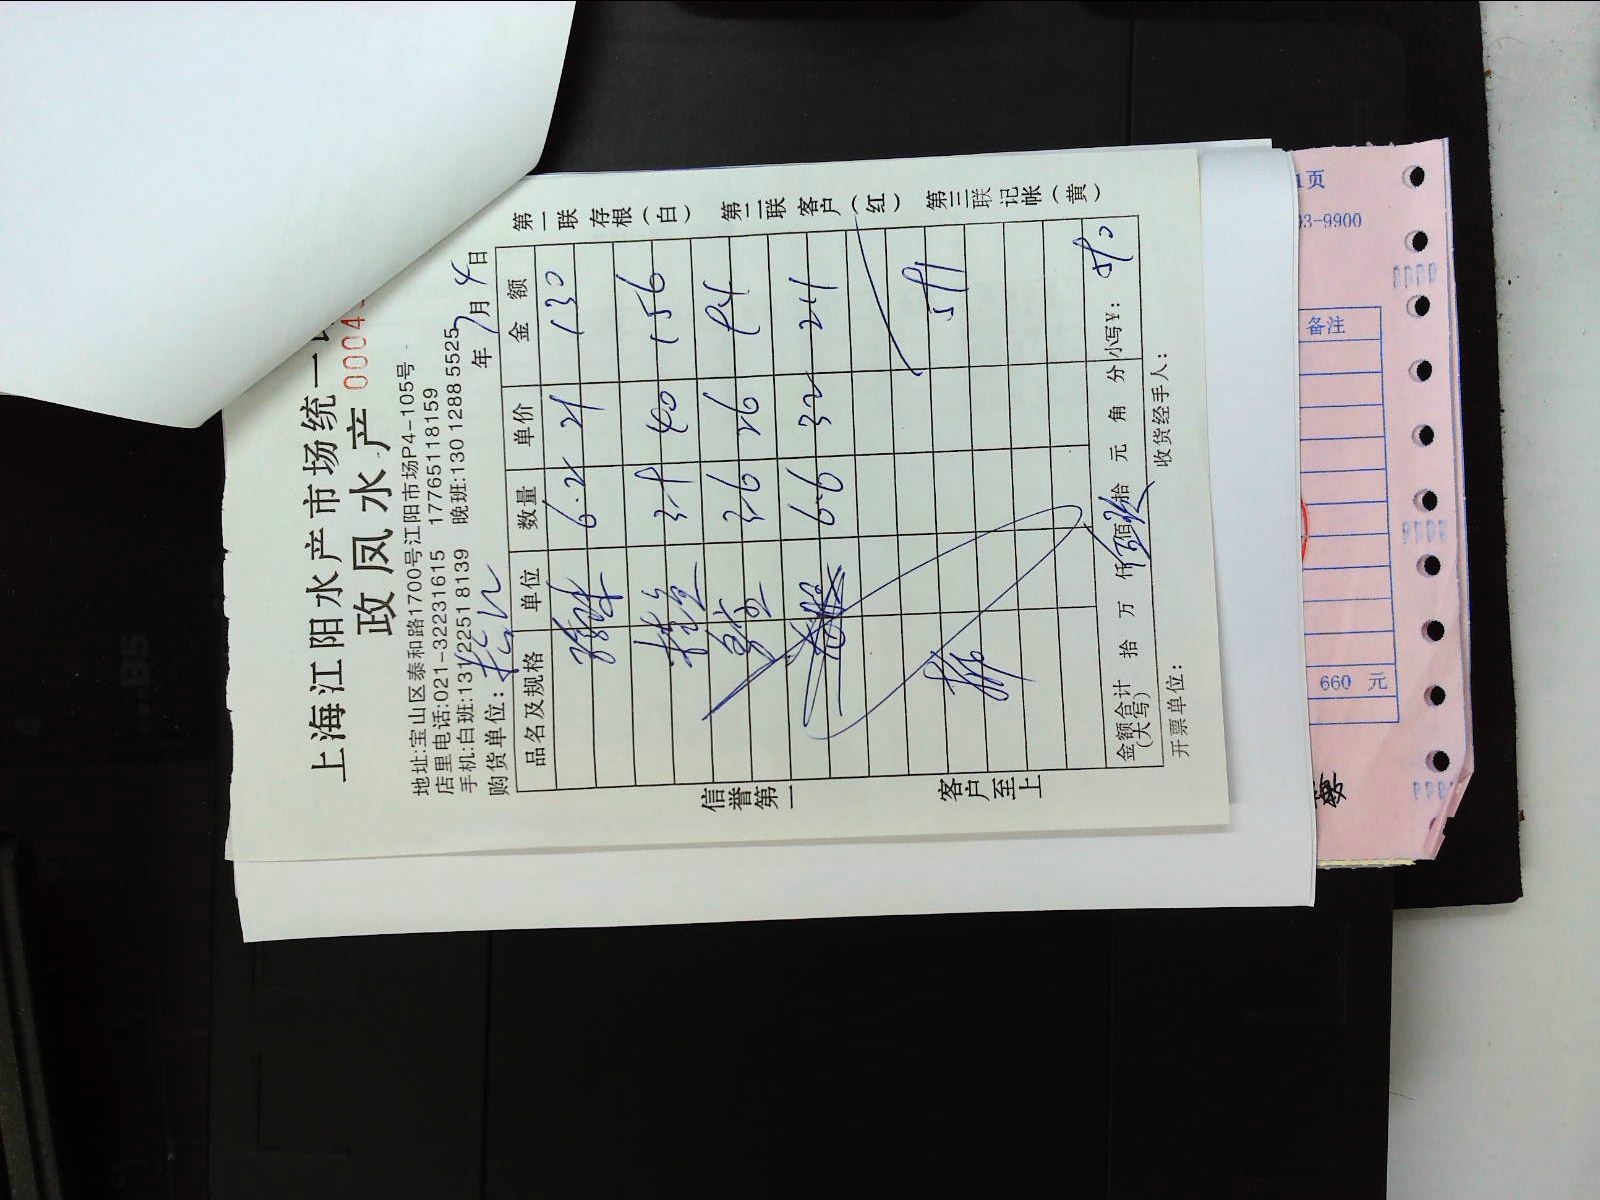 上海江阳水产市场统一
政凤水产 0004
地址:宝山区泰和路1700号江阳市场P4-105号
店里电话:021-32231615 17765118159
手机:白班:131 2251 8139 晚班:130 1288 5525
购货单位: 年 7月 4日
品名及规格 单位 数量 单价 金额
6.2 21 130
3.9 40 156
3.6 26 94
6.6 32 211
金额合计(大写) 拾 万 仟 佰 拾 元 角 分 小写¥:
开票单位: 收货经手人:
信誉第一 客户至上
第一联 存根(白) 第二联 客户(红) 第三联 记帐(黄)
1页
03-9900
备注
660 元